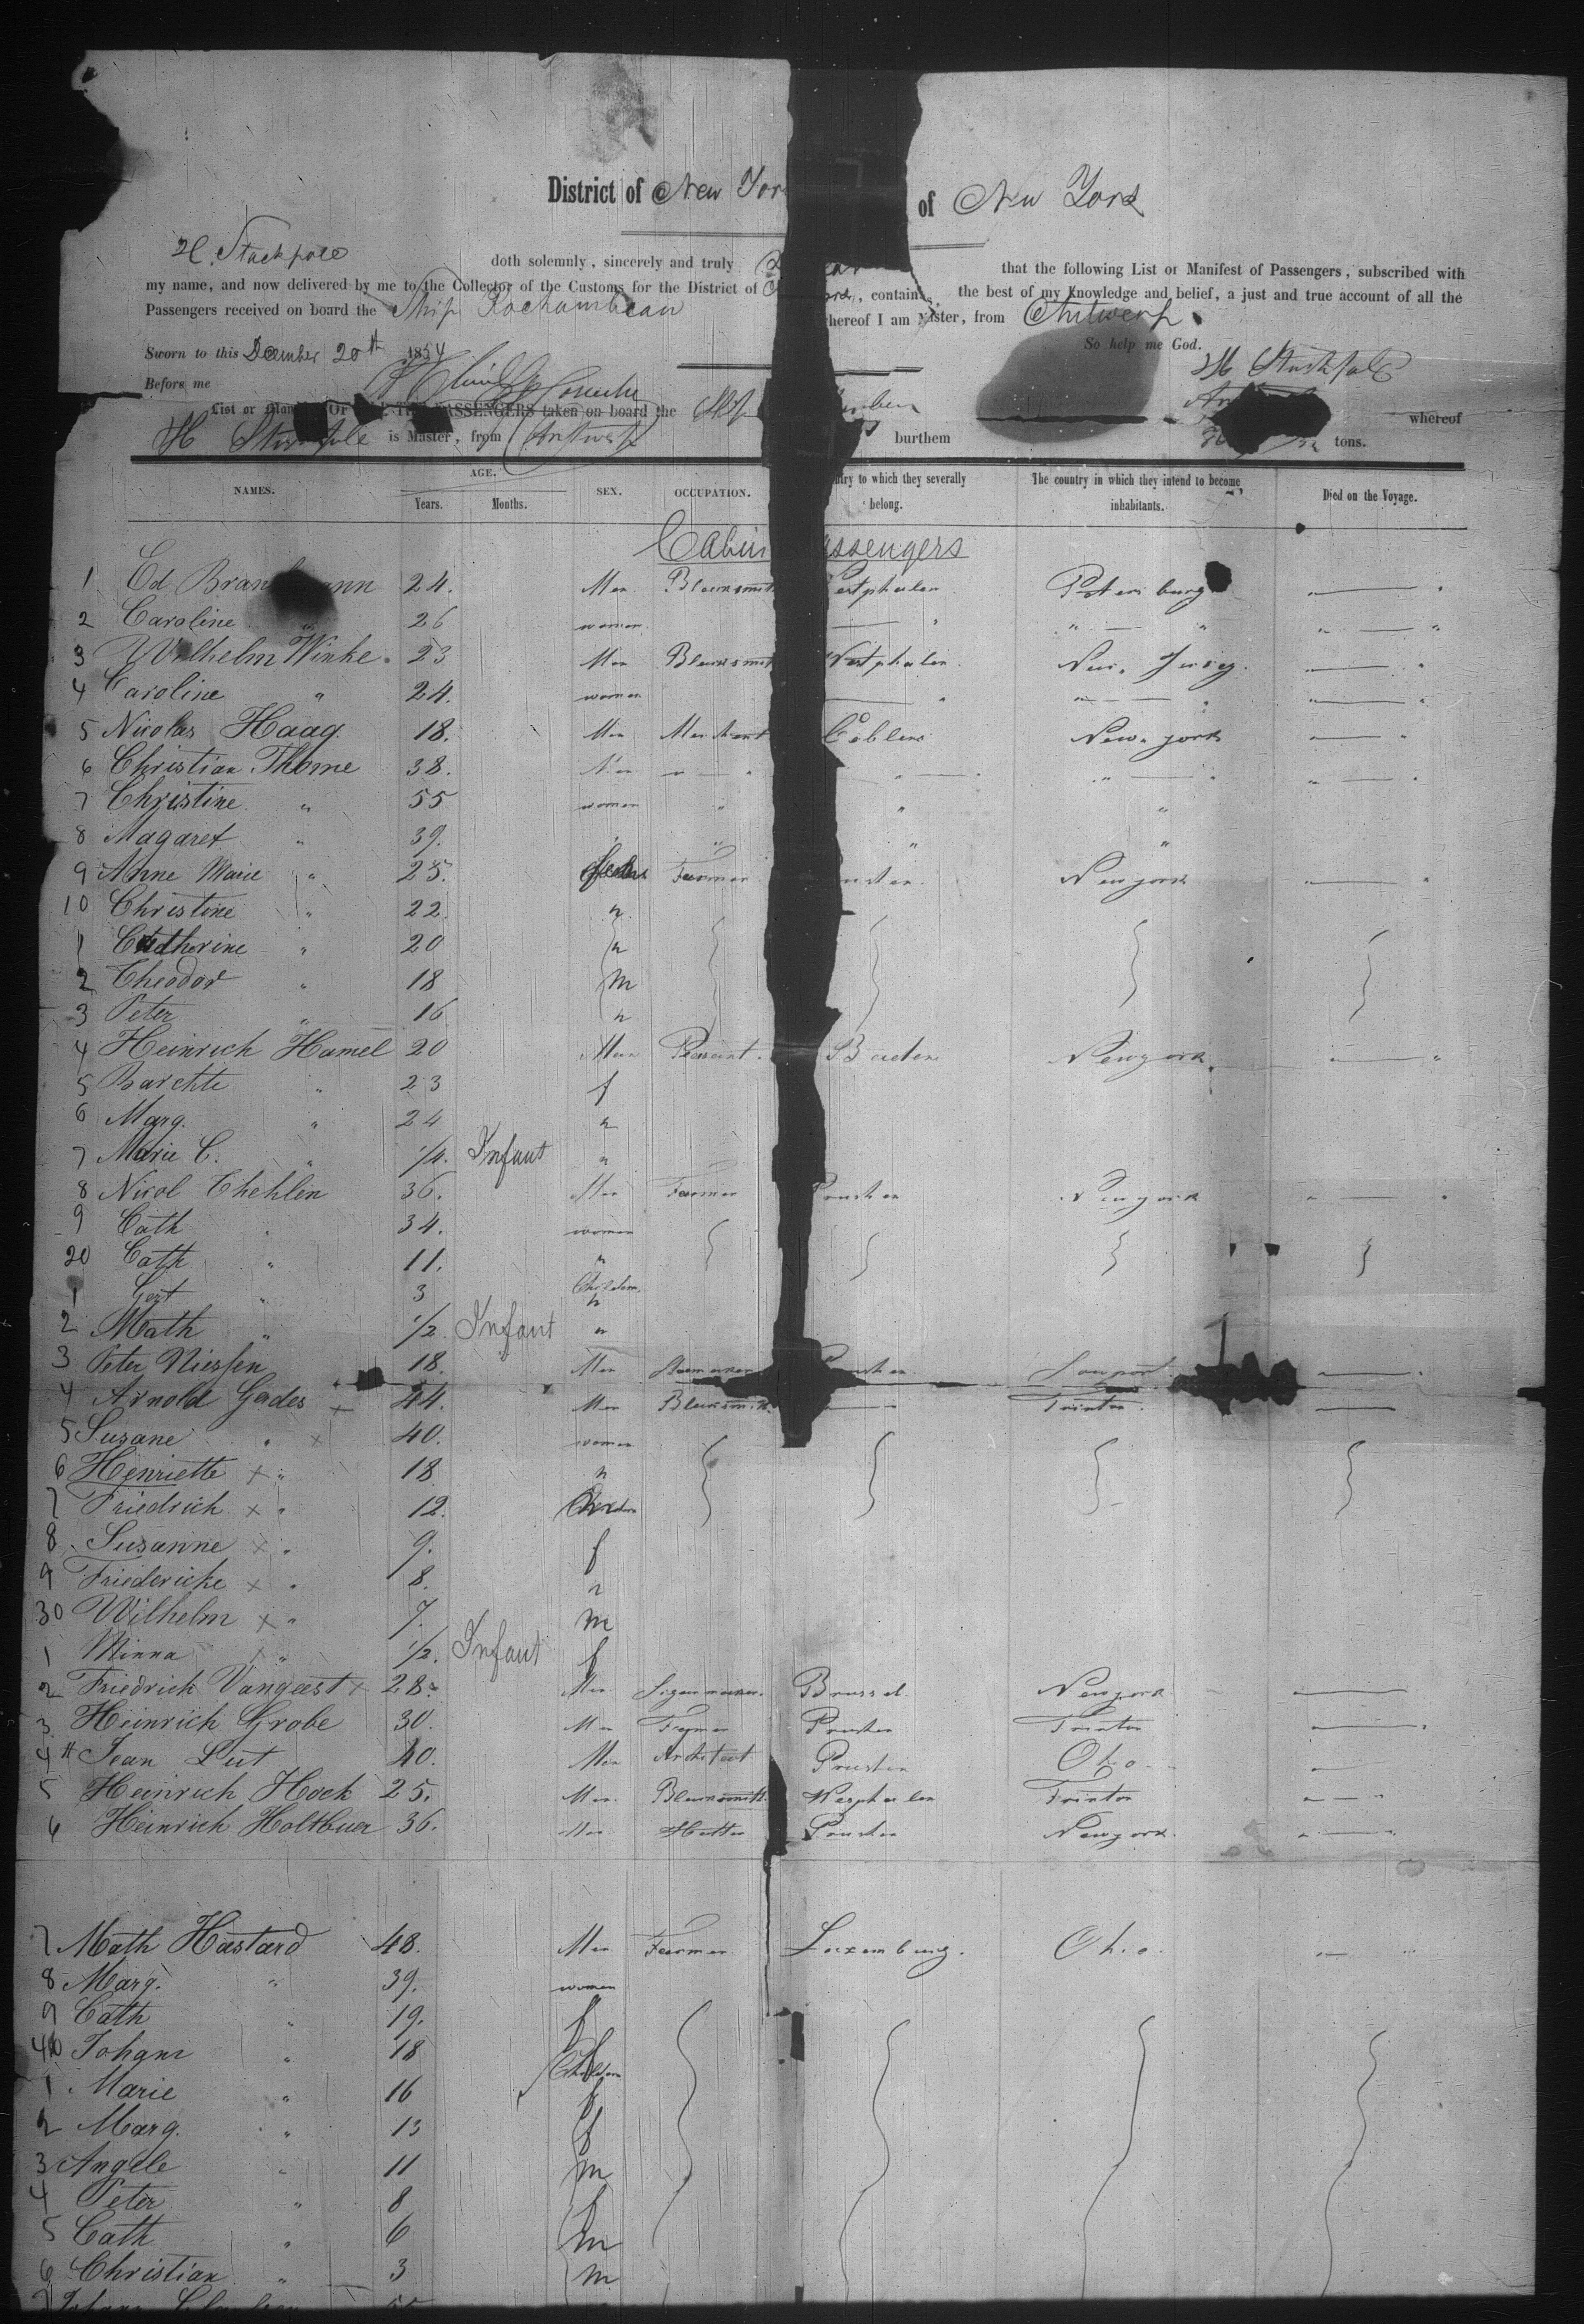 District of New York of New York
H. Stackpole doth solemnly, sincerely and truly that the following List or Manifest of Passengers, subscribed with
my name, and now delivered by me to the Collector of the Customs for the District of , contains, the best of my knowledge and belief, a just and true account of all the
Passengers received on board the Ship Rochambeau whereof I am Master, from Antwerp
Sworn to this December 20th 1854 So help me God.
Before me H Stackpole
List or Manifest OF ALL THE PASSENGERS taken on board the whereof
H Stackpole is Master, from Antwerp burthem tons.
NAMES. AGE. Years. Months. SEX. OCCUPATION. country to which they severally belong. The country in which they intend to become inhabitants. Died on the Voyage.
Cabin Passengers
1 Ed 24. Men Blacksmith Westphalen
2 Caroline " 26 women " "
3 Wilhelm Winke 23 Men Blacksmith Westphalen New Jersey
4 Caroline " 24. women " "
5 Nicolas Haag 18. Men Merchant Coblens New york
6 Christian Thome 38. Men " " "
7 Christine " 55 women " " "
8 Magaret " 39. " " " "
9 Anne Marie " 25. Farmer Newyork
10 Christine " 22 "
1 Catherine " 20 "
2 Theodor " 18 m
3 Peter " 16 "
4 Heinrich Hamel 20 Men Peasant Baden Newyork
5 Barette " 23 f
6 Marg. " 24 "
7 Marie C. " 1/4. Infant "
8 Nicol Thehlen 36. Men Farmer Prusten Newyork
9 Cath " 34. women
20 Cath " 11. "
1 Gert " 3 Children
2 Math " 1/2 Infant "
3 Peter Niessen 18. Men
4 Arnold Gades 44. Men Blacksmith Trinton
5 Susane " x 40. women
6 Henriette x " 18 "
7 Friedrich x " 12. Children
8 Susanne x " 9. f
9 Friedericke x " 8. "
30 Wilhelm x " 7. m
1 Minna x " 1/2. Infant f
2 Friedrich Vangeest x 28. Men Brussel Newyork
3 Heinrich Grobe 30. Men Farmer Prusten Trinton
4 Jean Lut 40. Men Architect Prusten Ohio
5 Heinrich Hock 25. Men Blacksmith Wesphalen Trinton
6 Heinrich Holtbuer 36. Men Hatter Prusten Newyork
7 Math Hastard 48. Men Farmer Luxemburg. Ohio.
8 Marg. " 39. women
9 Cath " 19. f
40 Johann " 18 Children
1 Marie " 16 f
2 Marg. " 13 f
3 Angele " 11 m
4 Peter " 8 f
5 Cath " 6 m
6 Christian " 3 m
7 Johann